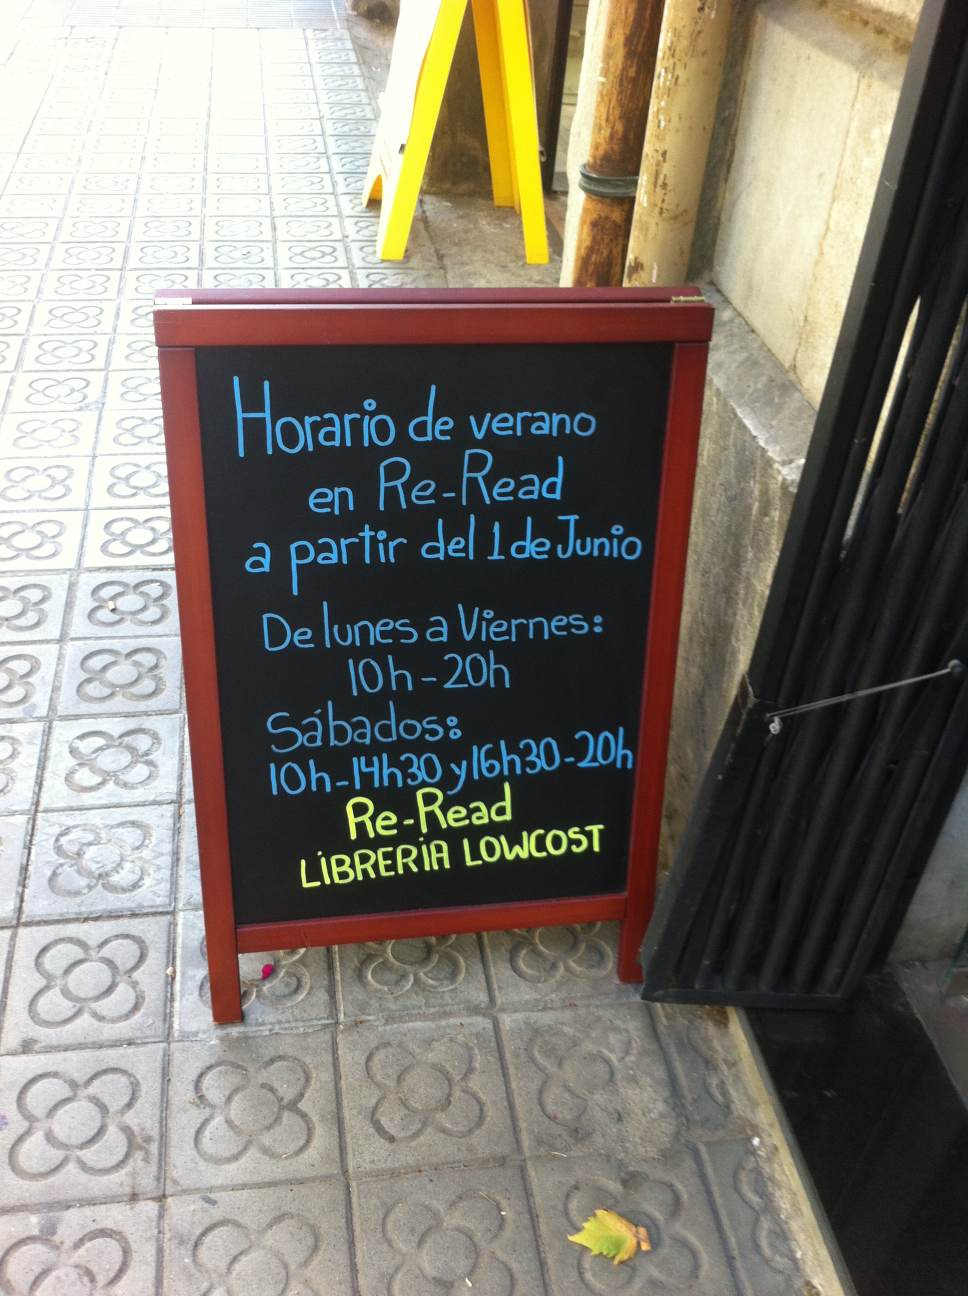 Horario de verano
en Re-Read
a partir del 1 de Junio
De lunes a Viernes:
10h-20h
Sábados:
10h-14h30 y 16h30-20h
Re-Read
LiBRERiA LOWCOST